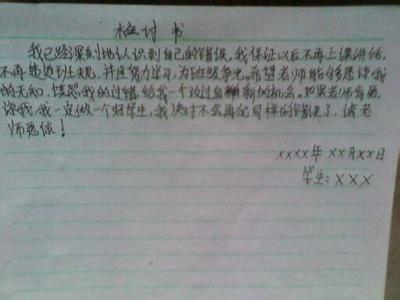 检讨书
我已经深刻地认识到自己的错误,我保证以后不再上课讲话,
不再违边班规,并且努力学习,为班级争光。希望老师能够原谅我
的无知,饶恕我的过错给我一个改过自新的机会。如果老师肯原
谅我,我一定做一个好学生,我决对不会再犯同样的错误了,请老
师愿信!
xxxx年xx月xx日
学生:xxx